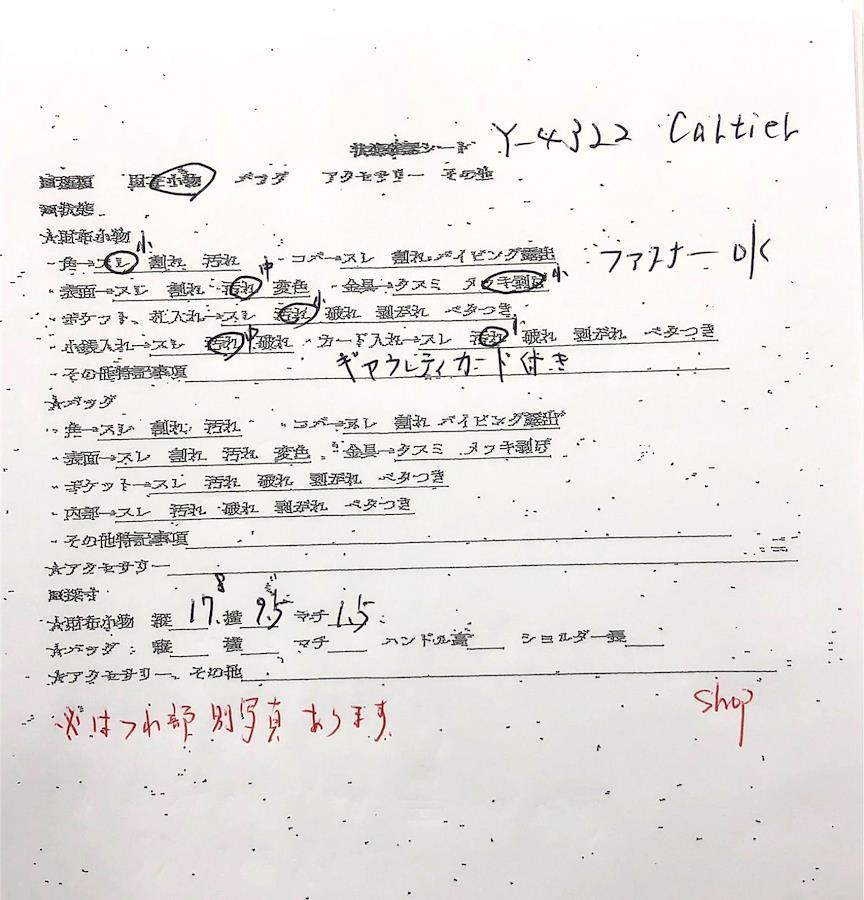 状態確認シート Y-4322 Cartier
財布小物 バッグ アクセサリー その他
☆財布小物
・角→スレ 小 割れ 汚れ ・コバ→スレ 割れ パイピング露出 ファスナー OK
・表面→スレ 割れ 汚れ 中 変色 ・金具→クスミ メッキ剥げ 小
・ポケット、札入れ→スレ 汚れ 小 破れ 剥がれ ベタつき
・小銭入れ→スレ 汚れ 中 破れ ・カード入れ→スレ 汚れ 小 破れ 剥がれ ベタつき
・その他特記事項 ギャランティカード付き
☆バッグ
・角→スレ 割れ 汚れ ・コバ→スレ 割れ パイピング露出
・表面→スレ 割れ 汚れ 変色 ・金具→クスミ メッキ剥げ
・ポケット→スレ 汚れ 破れ 剥がれ ベタつき
・内部→スレ 汚れ 破れ 剥がれ ベタつき
・その他特記事項
☆アクセサリー
☆財布小物 縦 17.8 横 9.5 マチ 1.5
☆バッグ 縦 横 マチ ハンドル高 ショルダー長
☆アクセサリー、その他
※はつれ部 別写真 あります shop